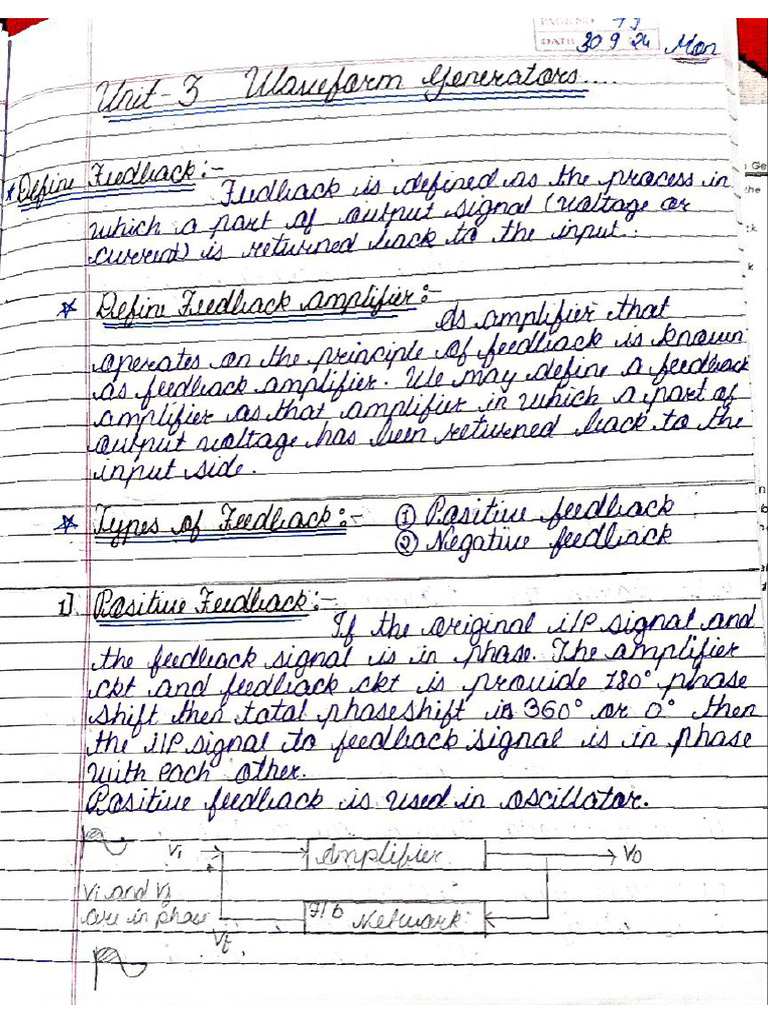 PAGE NO.
DATE 30 9 24 Mon
Unit-3 Waveform Generators....
* Define Feedback:-
Feedback is defined as the process in
which a part of output signal (voltage or
current) is returned back to the input.
* Define Feedback amplifier:-
As amplifier that
operates on the principle of feedback is known
as feedback amplifier. We may define a feedback
amplifier as that amplifier in which a part of
output voltage has been returned back to the
input side.
* Types of Feedback:- ① Positive feedback
② Negative feedback
1] Positive Feedback:-
If the original i/P signal and
the feedback signal is in phase. The amplifier
ckt and feedback ckt is provide 180° phase
shift then total phase shift is 360° or 0° then
the I/P signal to feedback signal is in phase
with each other.
Positive feedback is used in oscillator.
Vi Amplifier Vo
Vi and Vf
are in phase
F/b Network
Vf